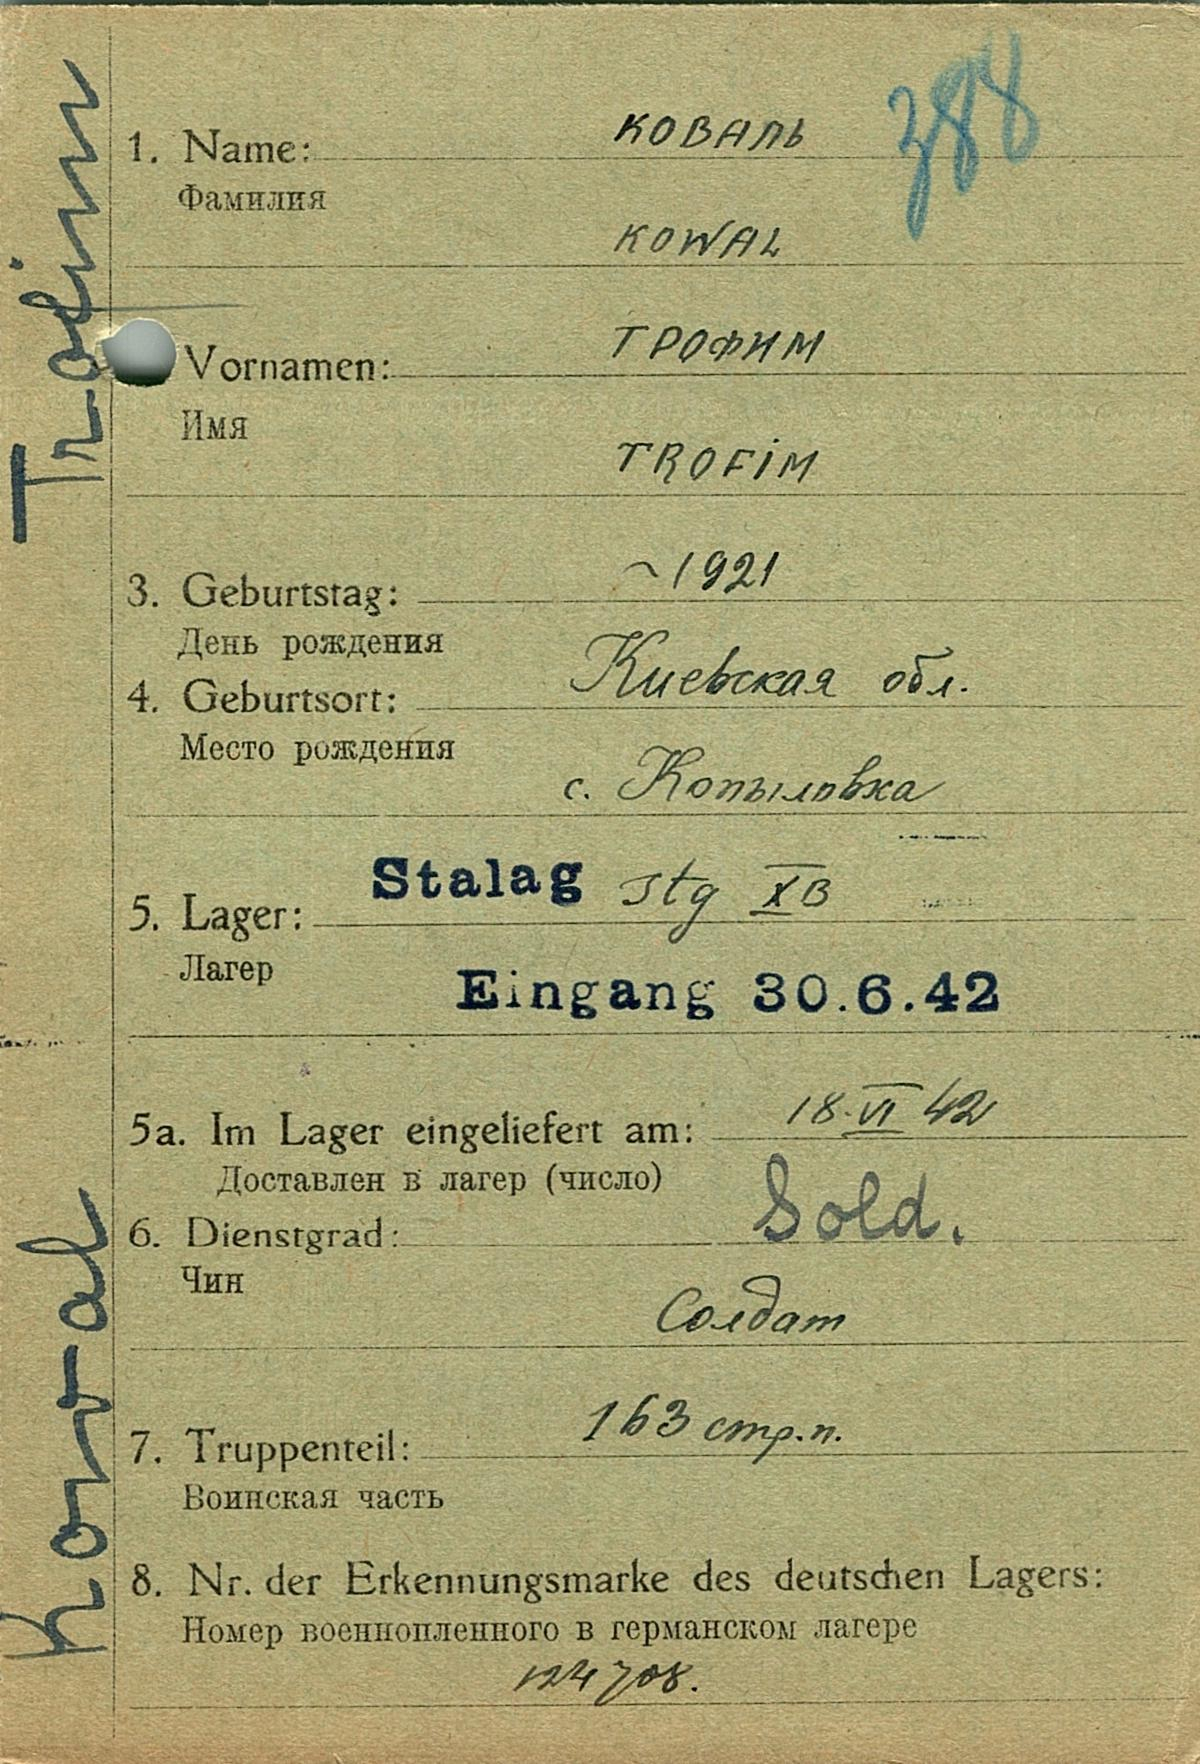 388
1. Name: КОВАЛЬ
Фамилия
KOWAL
Vornamen: ТРОФИМ
Имя
TROFiM
3. Geburtstag: ~1921
День рождения
Киевская обл.
4. Geburtsort:
Место рождения
с. Копыловка
5. Lager: Stalag Stg XB
Лагер
Eingang 30.6.42
5a. Im Lager eingeliefert am: 18.VI 42
Доставлен в лагер (число)
6. Dienstgrad: Sold.
Чин
Солдат
7. Truppenteil: 163 стр.п.
Воинская часть
8. Nr. der Erkennungsmarke des deutschen Lagers:
Номер военнопленного в германском лагере
124708.
Kowal Trofim